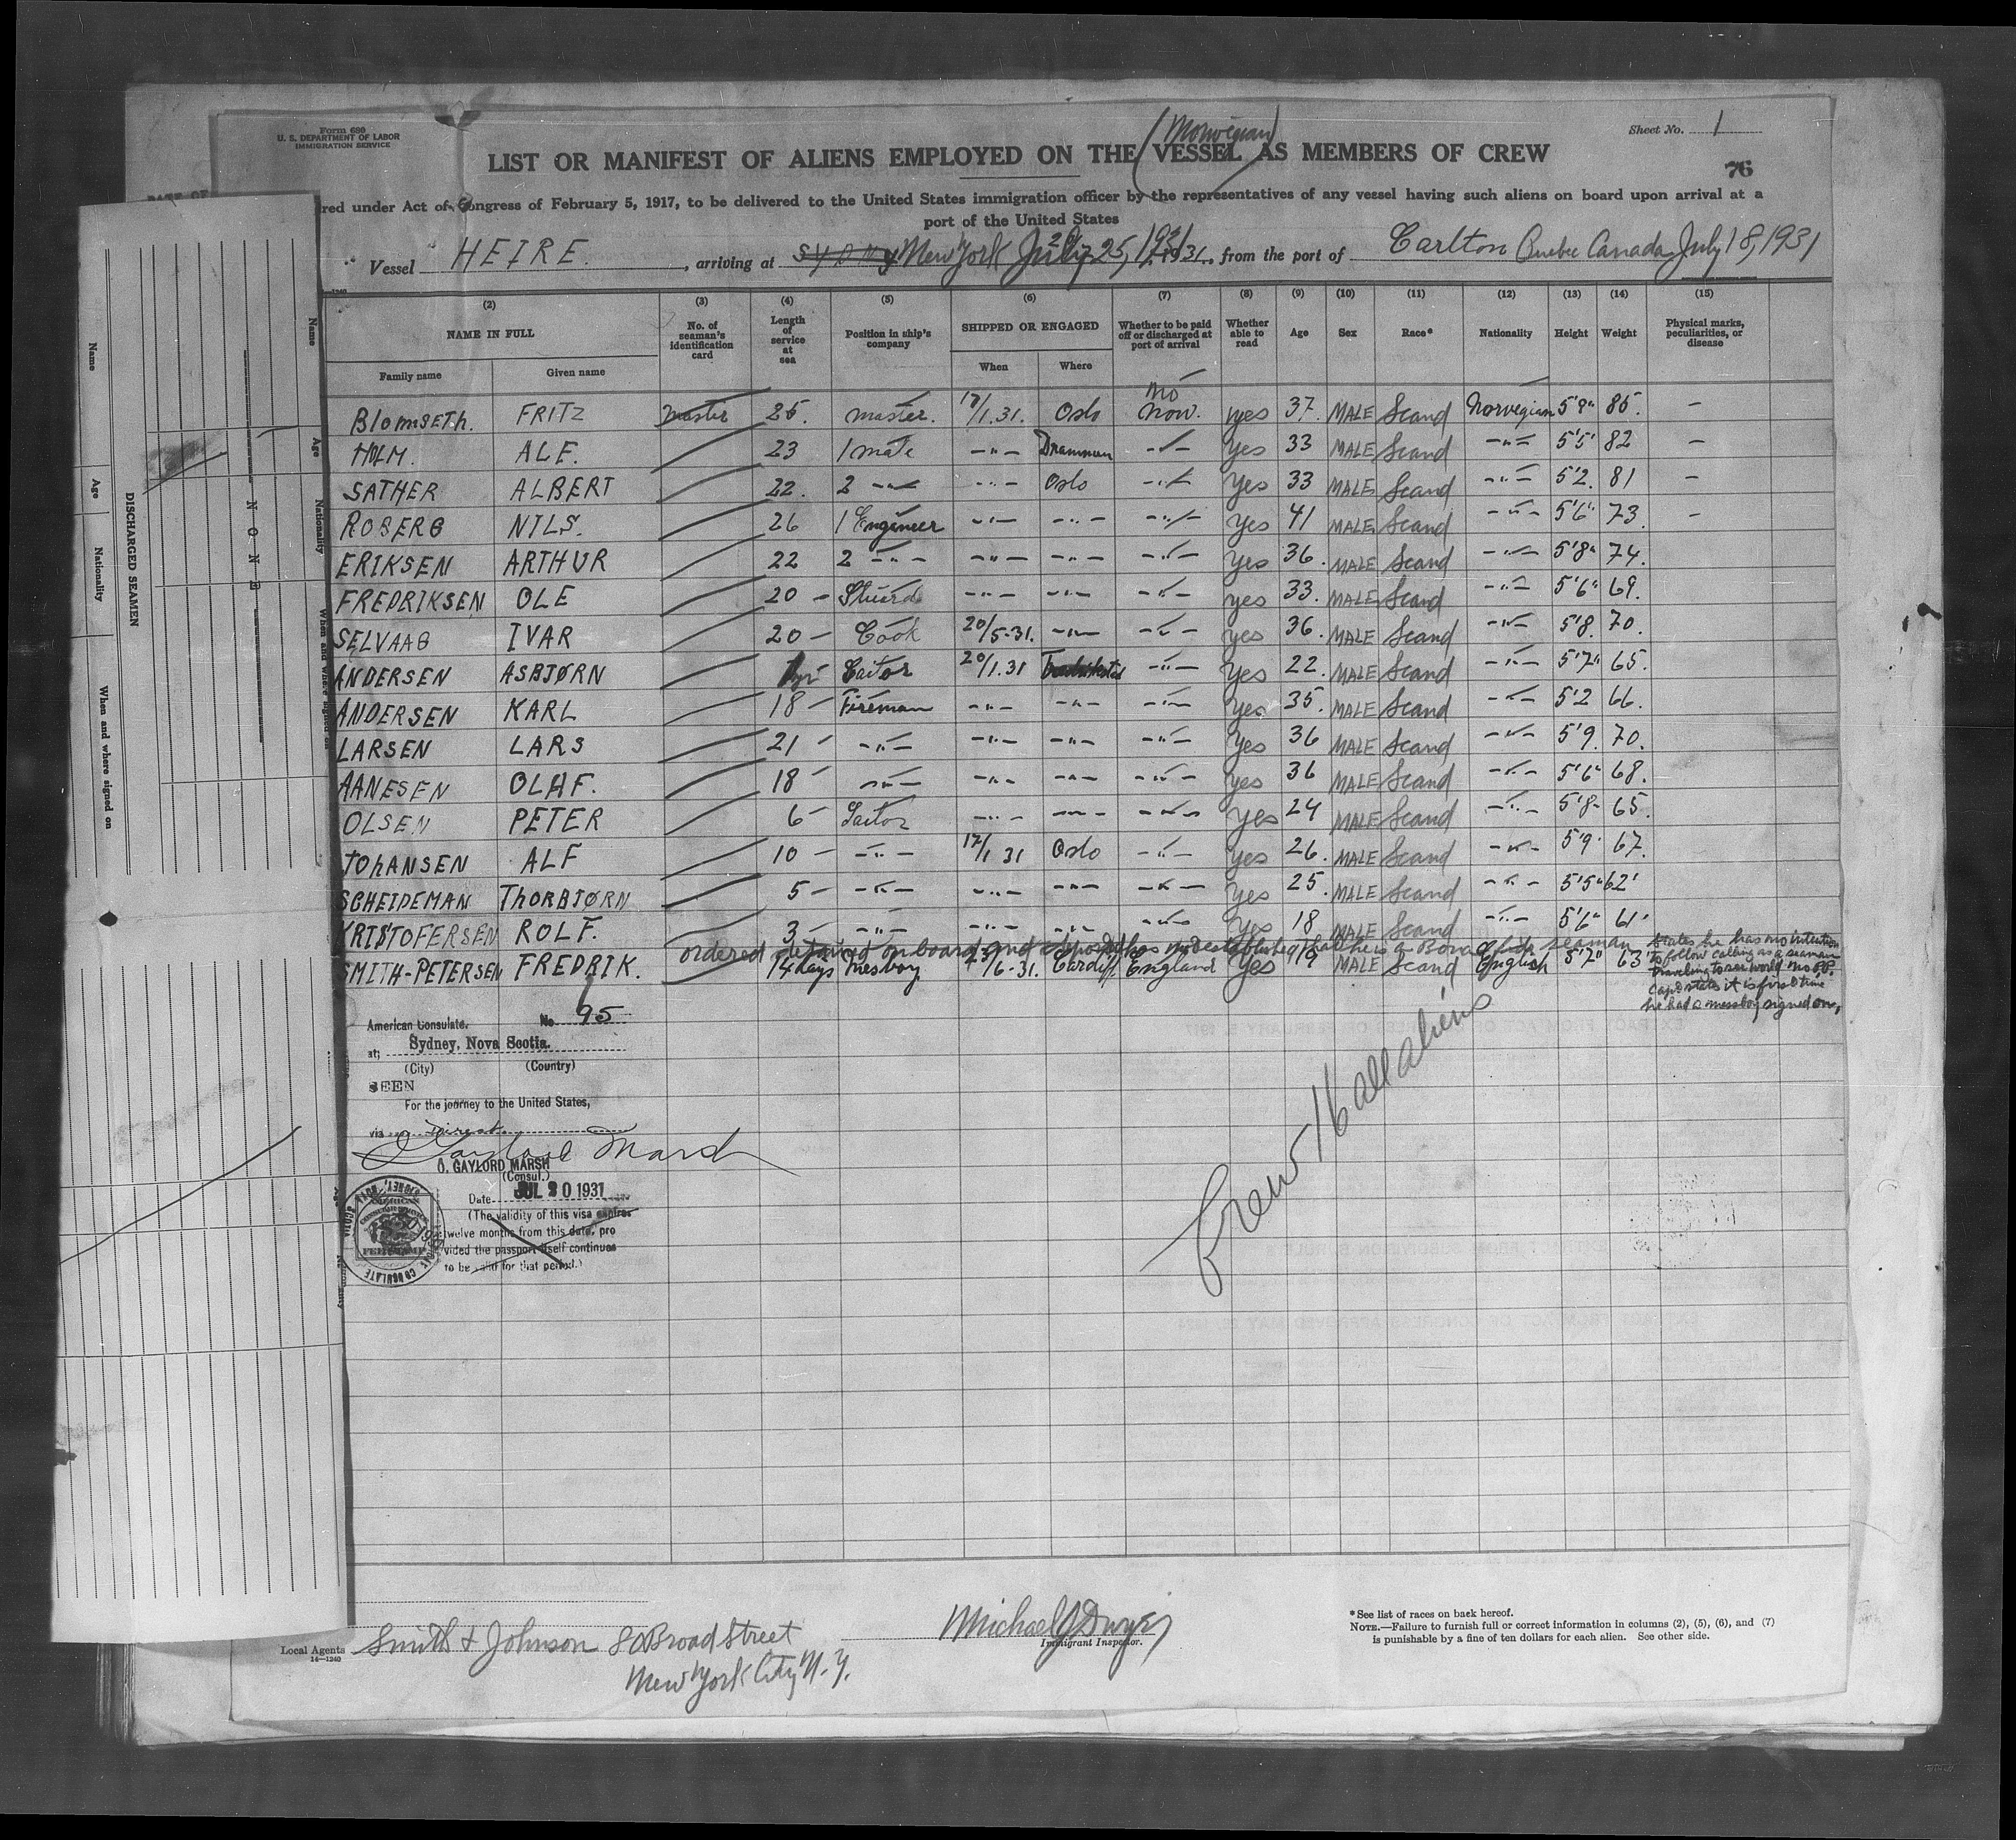 Form 689
U. S. DEPARTMENT OF LABOR
IMMIGRATION SERVICE
Sheet No. 1
(Norwegian)
LIST OR MANIFEST OF ALIENS EMPLOYED ON THE VESSEL AS MEMBERS OF CREW
76
red under Act of Congress of February 5, 1917, to be delivered to the United States immigration officer by the representatives of any vessel having such aliens on board upon arrival at a
port of the United States
Vessel HEIRE. , arriving at New York July 25, 1931, from the port of Carlton Quebec Canada July 18, 1931
(2) (3) (4) (5) (6) (7) (8) (9) (10) (11) (12) (13) (14) (15)
NAME IN FULL No. of seaman's identification card Length of service at sea Position in ship's company SHIPPED OR ENGAGED Whether to be paid off or discharged at port of arrival Whether able to read Age Sex Race* Nationality Height Weight Physical marks, peculiarities, or disease
Family name Given name When Where
no
BlomsETh. FRITZ master 25. master. 17/1.31. Oslo now. yes 37. MALE Scand Norwegian 5'9" 85. –
HOLM. ALF. 23 1 mate –"– Drammen –"– Yes 33 MALE Scand –"– 5'5' 82 –
SATHER ALBERT 22. 2 –"– –"– Oslo –"– Yes 33 MALE Scand –"– 5'2. 81 –
ROBERG NILS. 26 1 Engineer –"– –"– –"– Yes 41 MALE Scand –"– 5'6" 73. –
ERIKSEN ARTHUR 22 2 –"– –"– –"– –"– Yes 36. MALE Scand –"– 5'8" 74.
FREDRIKSEN OLE 20 – Stuard –"– –"– –"– yes 33. MALE Scand –"– 5'6" 69.
SELVAAG IVAR 20 – Cook 20/5-31. –"– –"– yes 36. MALE Scand –"– 5'8. 70.
ANDERSEN ASBJØRN 20/1.31 –"– Yes 22. MALE Scand –"– 5'7" 65.
ANDERSEN KARL 18 – Fireman –"– –"– –"– Yes 35. MALE Scand –"– 5'2 66.
LARSEN LARS 21 – –"– –"– –"– –"– Yes 36 MALE Scand –"– 5'9. 70.
AANESEN OLAF. 18 – –"– –"– –"– –"– Yes 36 MALE Scand –"– 5'6" 68.
OLSEN PETER 6 – –"– –"– –"– Yes 24 MALE Scand –"– 5'8" 65.
JOhANSEN ALF 10 – –"– 17/1 31 Oslo –"– yes 26. MALE Scand –"– 5'9. 67.
SCHEIDEMAN ThORBJØRN 5 – –"– –"– –"– –"– Yes 25. MALE Scand –"– 5'5" 62'
KRISTOFERSEN ROLF. 3 – –"– –"– –"– –"– Yes 18 MALE Scand –"– 5'6" 61'
ordered detained on board and deported has not established that he is a Bona fide seaman
SMITH-PETERSEN FREDRIK. 14 days Mesboy /6-31. Cardiff England Yes 19 MALE Scand English 5'7" 63
States he has no intention
to follow calling as a seaman
traveling to see world no P.P.
Capt states it is first time
he had a messboy signed on,
American Consulate. No 95
at; Sydney, Nova Scotia.
(City) (Country)
SEEN
For the journey to the United States,
via Direct.
O. Gaylord Marsh
O. GAYLORD MARSH
(Consul.)
Date JUL 20 1931
(The validity of this visa expires
twelve months from this date, pro
vided the passport itself continues
to be valid for that period.)
Crew 16 all aliens
Name
Age
Nationality
When and where signed on
DISCHARGED SEAMEN
NONE
Name
Age
Nationality
When and where signed on
Local Agents Smith & Johnson 80 Broad Street
New York City N.Y.
14—1240
Michael J Dwyer
Immigrant Inspector.
*See list of races on back hereof.
NOTE.—Failure to furnish full or correct information in columns (2), (5), (6), and (7)
is punishable by a fine of ten dollars for each alien. See other side.